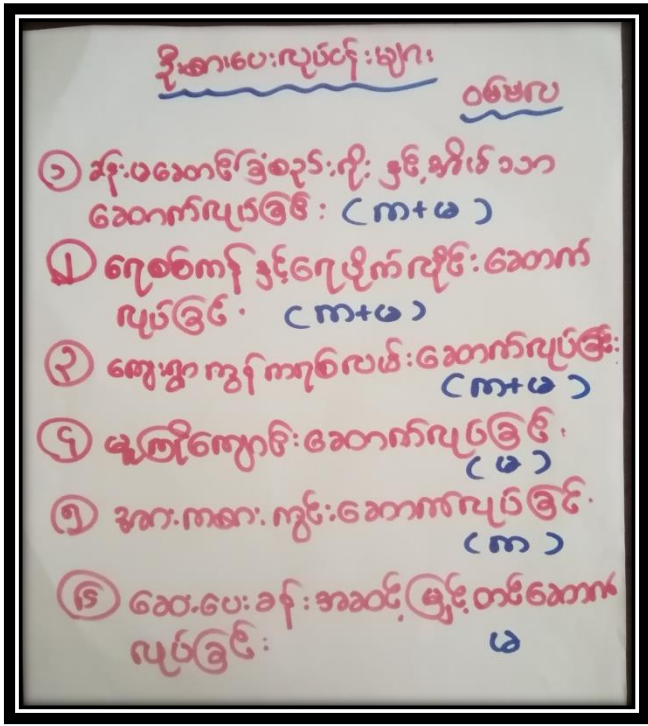 ဦးစားပေးလုပ်ငန်းများ
ဝမ်မလ
၁ ခန်းမဆောင်ခြံစည်းရိုး နှင့်အိမ်သာ
ဆောက်လုပ်ခြင်း (ကာ+မ)
၂ ရေစစ်ကန် နှင့်ရေပိုက်လိုင်းဆောက်
လုပ်ခြင်း (ကာ+မ)
၃ ကျေးရွာ ကွန်ကရစ်လမ်းဆောက်လုပ်ခြင်း
(ကာ+မ)
၄ မူကြိုကျောင်းဆောက်လုပ်ခြင်း
(မ)
၅ အားကစားကွင်းဆောက်လုပ်ခြင်း
(ကာ)
၆ ဆေးပေးခန်းအဆင့်မြှင့်တင်ဆောက်
လုပ်ခြင်း မ